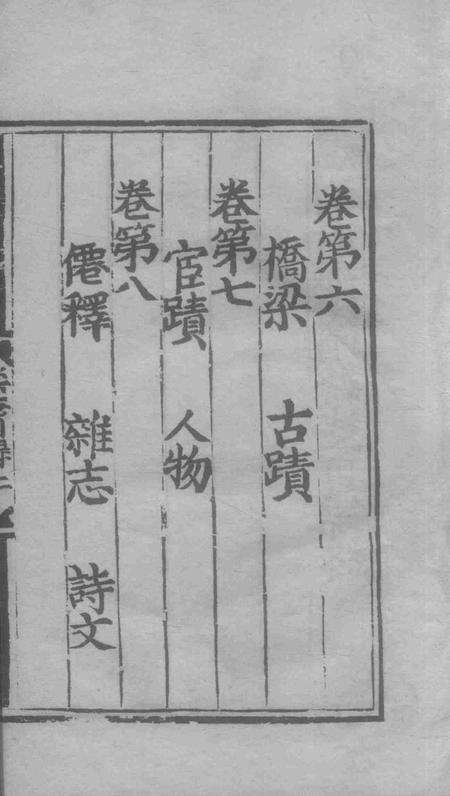 卷第六
橋梁 古蹟
卷第七
宦蹟 人物
卷第八
僊釋 雜志 詩文